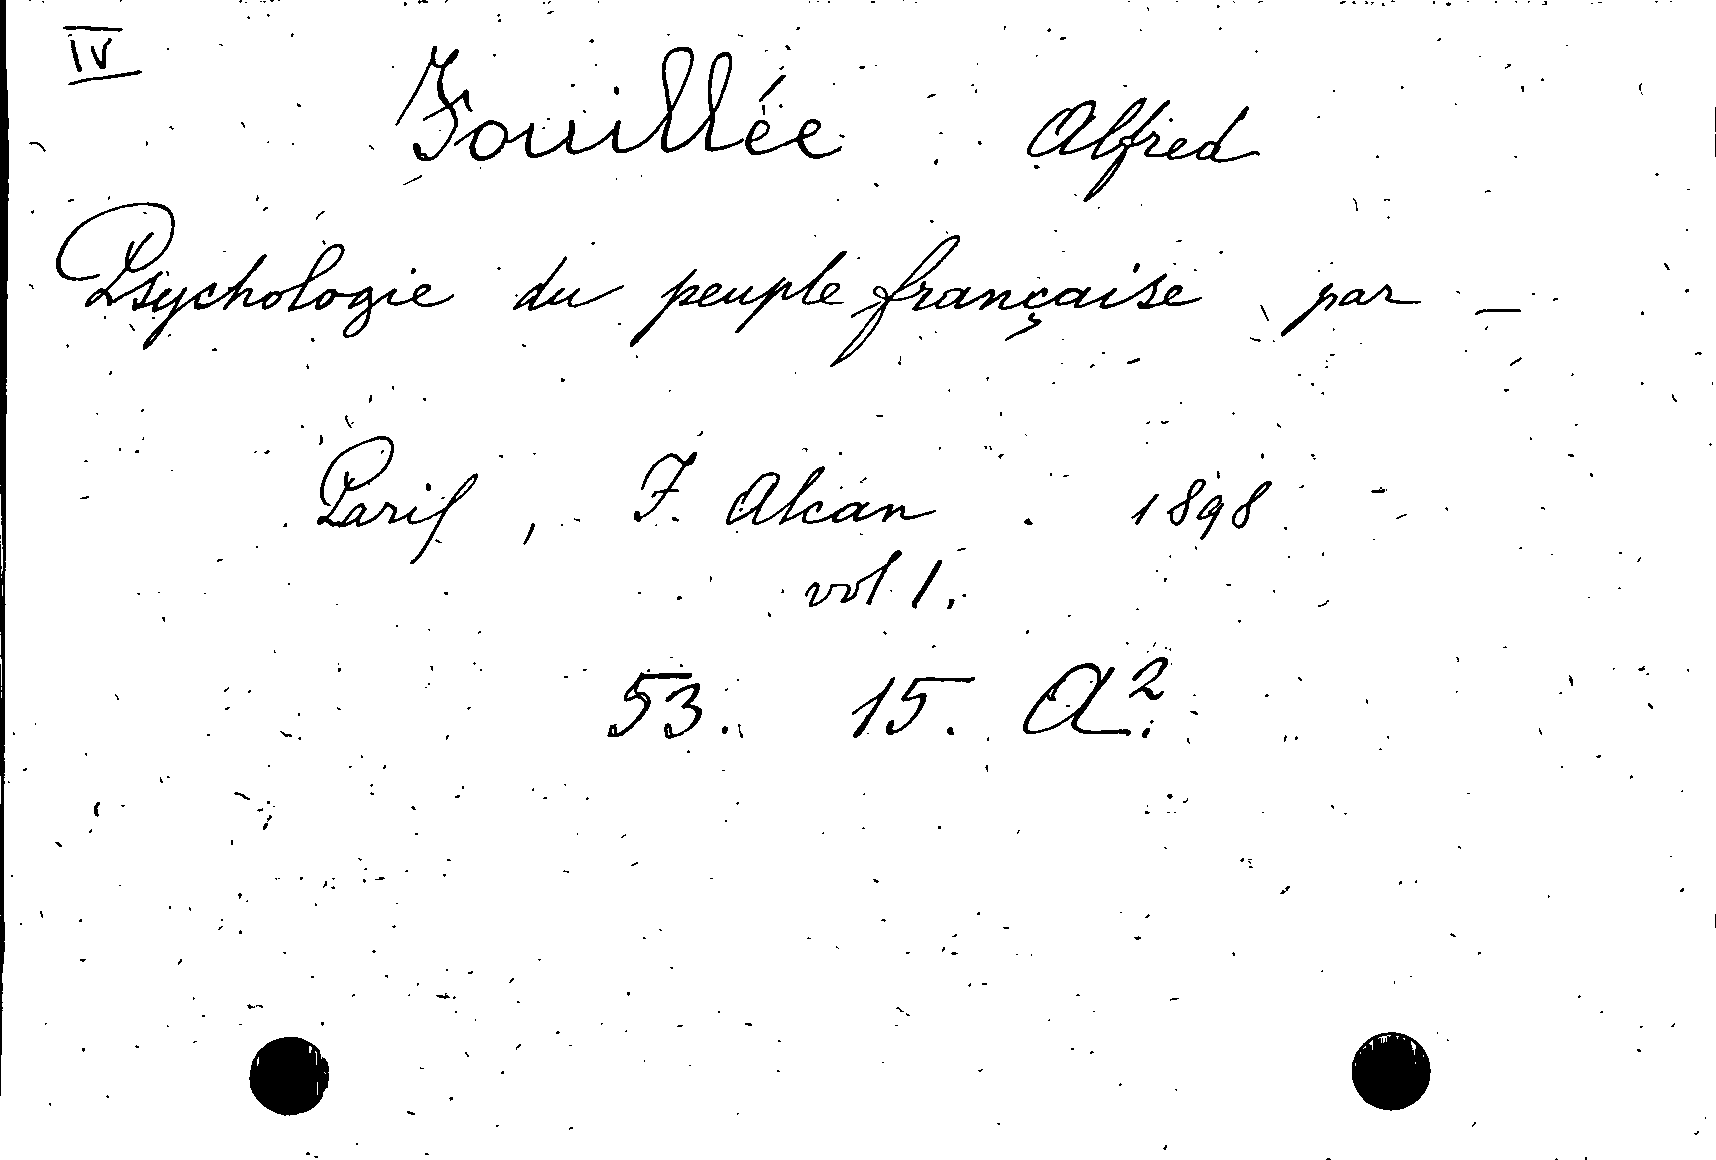 IV
Fouillée Alfred
Psychologie du peuple française par –
Paris, F. Alcan. 1898
vol 1.
53. 15. A².